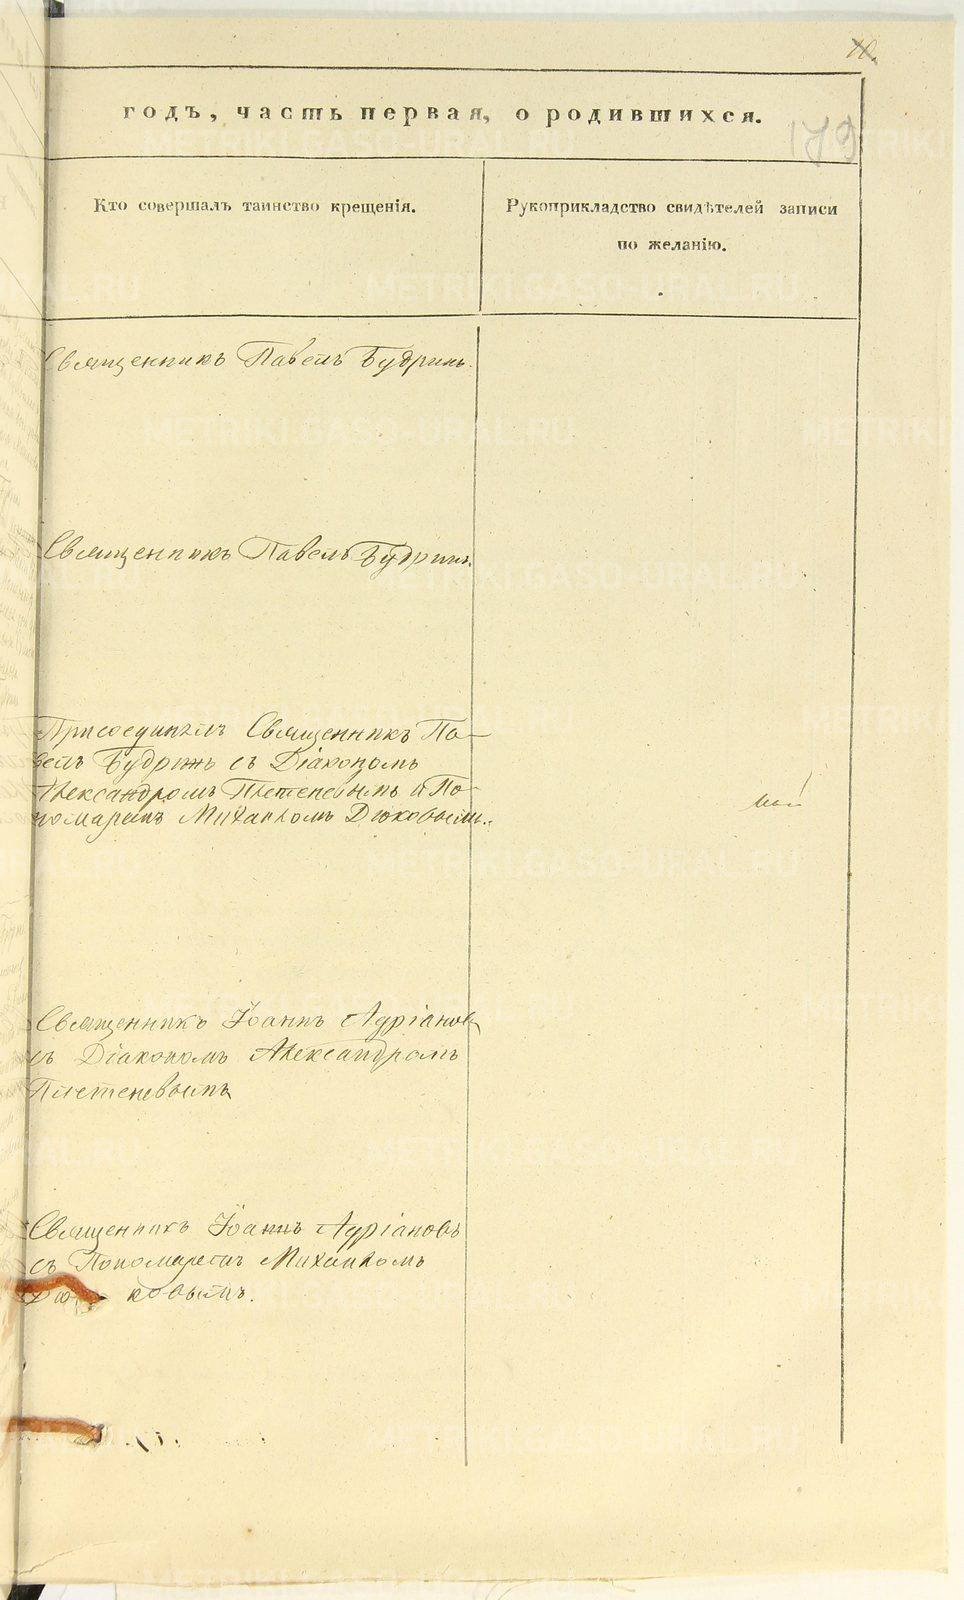 годъ, часть первая, о родившихся.
179
Кто совершалъ таинство крещенія.
Рукоприкладство свидѣтелей записи
по желанію.
Священникъ Павелъ Будринъ.
Священникъ Павелъ Будринъ.
Присоединялъ Священникъ Па-
велъ Будринъ съ Діакономъ
Александромъ Плетеневымъ и По-
номаремъ Михаиломъ Дюковымъ.
Священникъ Іоаннъ Адріановъ
съ Діакономъ Александромъ
Плетеневымъ
Священникъ Іоаннъ Адріановъ
съ Пономаремъ Михаиломъ
Дюковымъ.
METRIKI.GASO-URAL.RU